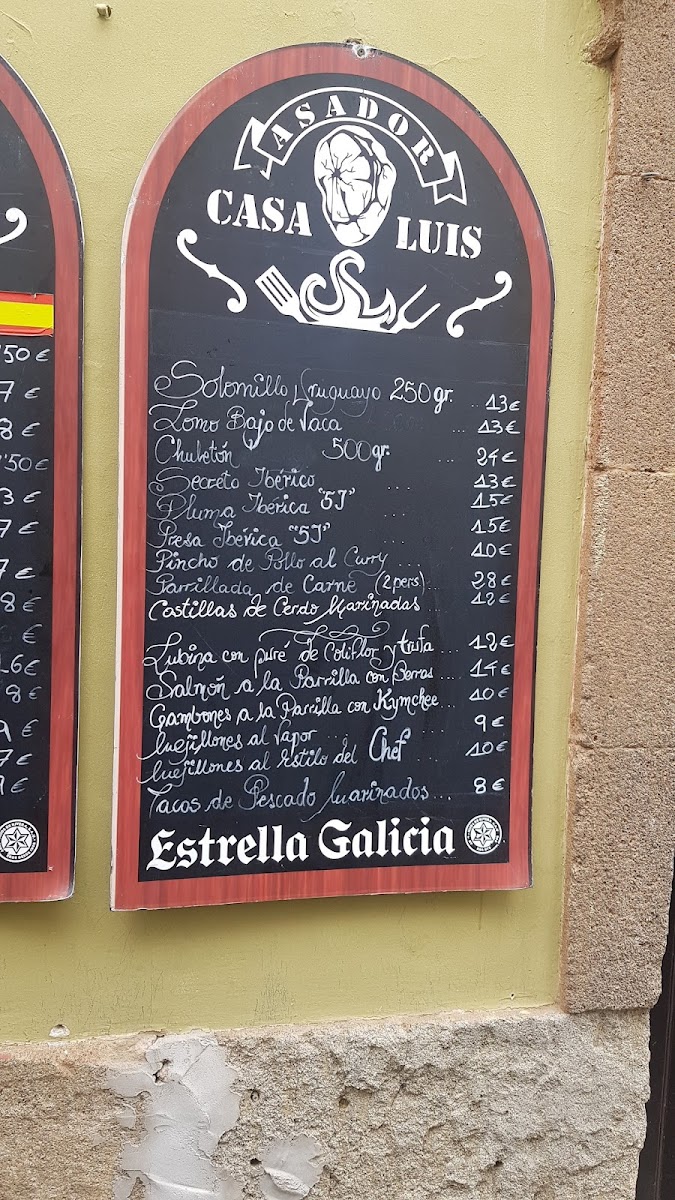 ASADOR
CASA LUIS
'50 €
7 €
8 €
'50 €
3 €
7 €
7 €
8 €
€
16 €
8 €
9 €
7 €
Solomillo Uruguayo 250 gr. .. 13 €
Lomo Bajo de Vaca ... 13 €
Chuletón 500 gr. ... 24 €
Secreto Ibérico .... 13 €
Pluma Ibérica "5J" .... 15 €
Presa Ibérica "5J" .... 15 €
Pincho de Pollo al Curry ... 10 €
Parrillada de Carne (2 pers) .. 28 €
Costillas de Cerdo Marinadas .. 12 €
Lubina con puré de Coliflor y trufa .... 12 €
Salmón a la Parrilla con Berros ... 14 €
Gambones a la Parrilla con Kymchee ... 10 €
Mejillones al Vapor .... 9 €
Mejillones al Estilo del Chef 10 €
Tacos de Pescado Marinados ... 8 €
Estrella Galicia